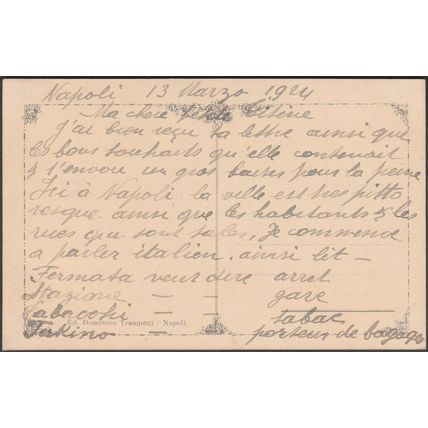 Napoli 13 Marzo 1924
Ma chère petite Titine
j'ai bien reçu ta lettre ainsi que
les bons souhaits qu'elle contenait
& t'envoie un gros baiser pour la peine
Ici à Napoli la ville est très pitto
resque ainsi que les habitants & les
rues qui sont sales, Je commence
a parler italien. ainsi
Fermata veut dire arret
Stazione — — gare
Tabacchi — — tabac
Ed. Domenico Trampetti - Napoli
Fakino — porteur de bagages